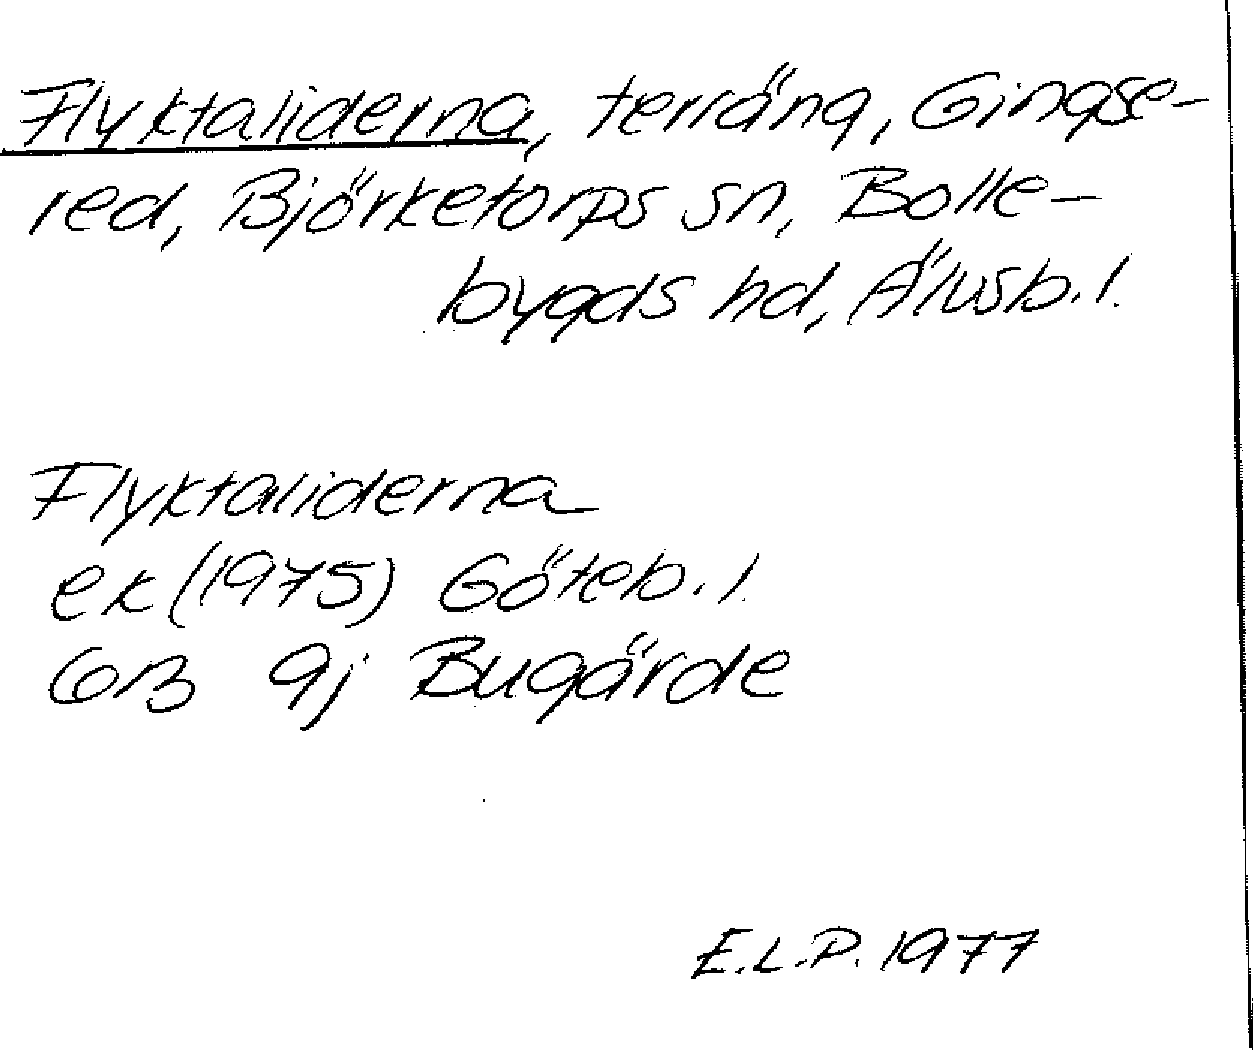 Flyktaliderna, terräng, Gingse-
red, Björketorps sn, Bolle-
bygds hd, Älvsb. l.
Flyktaliderna
ek (1975) Göteb. l.
6B 9j Bugärde
E.L.P. 1977